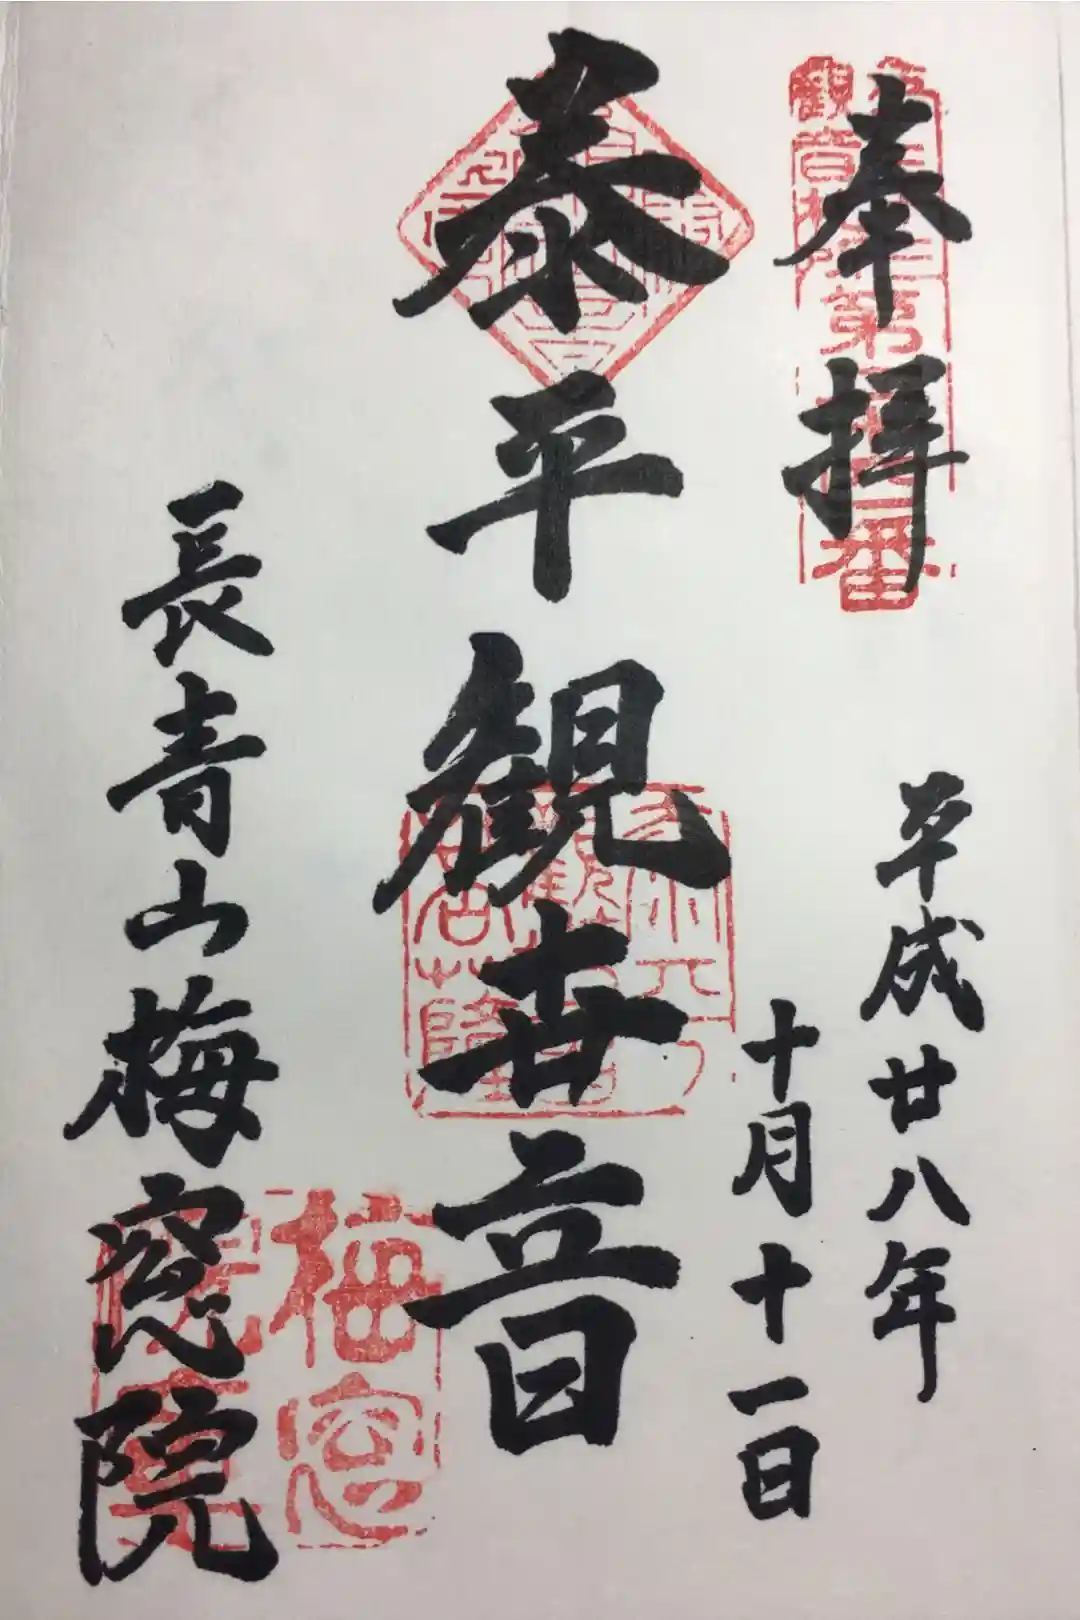 奉拝
平成廿八年
十月十一日
泰平観世音
長青山梅窓院
梅窓